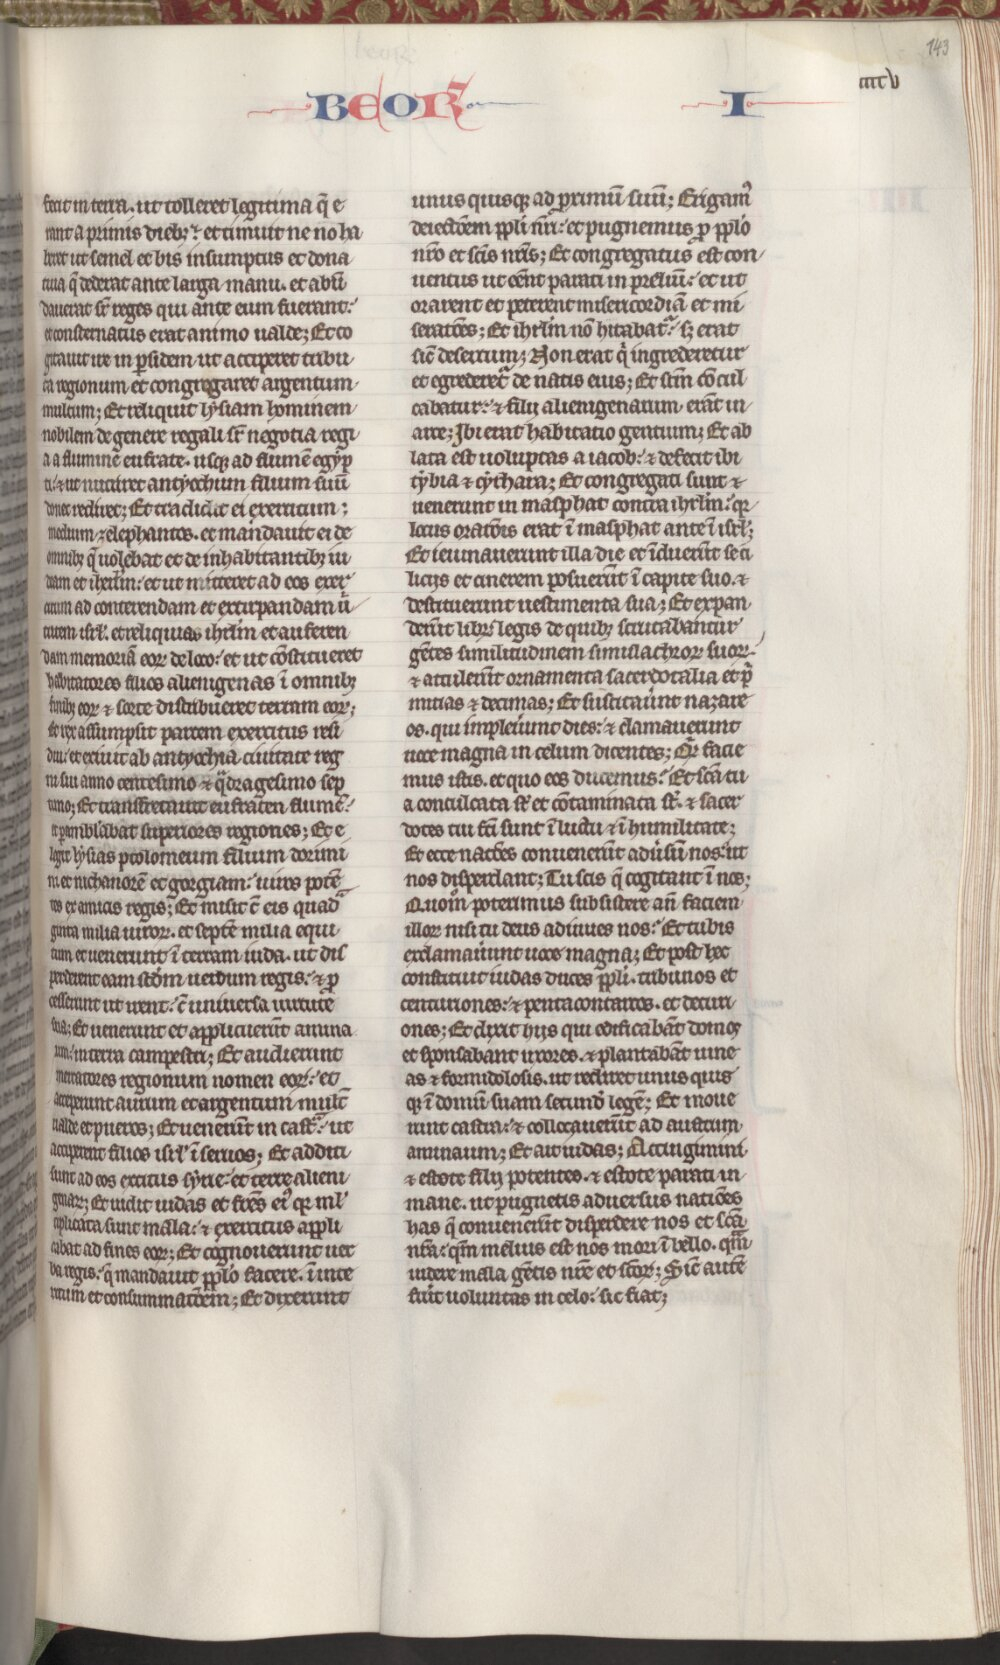 143
cccc v
BEORꝜ I
fecit in terra. ut tolleret legitima q̄ e
rant a primis dieb; ⁊ et timuit ne nō ha
beret ut semel et bis in sumptus et dona
tiua q̄ dederat ante larga manu. et abū
dauerat sr̄ reges qui ante eum fuerant:
et consternatus erat animo ualde; Et co
gitauit ire in ꝑsidem ut acciperet tribu
ta regionum et congregaret argentum
multum; Et reliquit lysiam hominem
nobilem de genere regali sr̄ negotia regi
a a flumine eufrate. usqꝫ ad flumē egyp
ti: et ut nutriret antyochum filium suū
donec rediret; Et tradidit ei exercitum;
medium ⁊ elephantos. et mandauit ei de
omnibꝫ q̄ uolebat et de inhabitantibꝫ iu
deam et ihrl̄m: et ut mitteret ad eos exer
citum ad conterendam et extirpandam uir̄
tutem isrl̄. et reliquias ihrl̄m et auferen
dam memoriā eoꝝ de loco: et ut cōstitueret
habitatores filios alienigenas ī omnibꝫ
finibꝫ eoꝝ ⁊ sorte distribueret terram eoꝝ;
Et rex assumpsit partem exercitus resi
dui: et exiuit ab antyochia ciuitate reg
ni sui anno centesimo ⁊ q̄dragesimo sep
timo; Et transfretauit eufraten flumē:
et ꝑambulabat superiores regiones; Et e
legit lysias ptolomeum filium dorimi
ni et nichanorē et gorgiam: uiros potē
tes ex amicis regis; Et misit c̄ eis quad
ginta milia uiroꝝ. et septē milia equi
tum et uenerunt ī terram iuda. ut dis
perderent eam scd̄m uerbum regis: ⁊ ꝓ
cesserunt ut irent: c̄ uniuersa uirtute
sua; Et uenerunt et applicuerūt amma
um: in terra campestri; Et audierunt
mercatores regionum nomen eoꝝ: et
acceperunt aurum et argentum mult̄
ualde et pueros; Et uenerūt in castr̄: ut
acciperent filios isrl̄ ī seruos; Et additi
sunt ad eos excitus syrie: et terre alieni
genaꝝ; Et uidit iudas et frēs ei' qꝫ ml'
tiplicata sunt mala: ⁊ exercitus appli
cabat ad fines eoꝝ; Et cognouerunt uer
ba regis: q̄ mandauit pplo facere. ī inte
ritum et consummatōem; Et dixerunt
unus quisqꝫ ad proximū suū; Erigam'
deiectōem ppli nr̄i: et pugnemus ꝓ pplo
nr̄o et scīs nr̄is; Et congregatus est con
uentus ut eēnt parati in prelium: et ut
orarent et peterent misericordiā et mi
seratōes; Et ihrl̄m nō hitabat: sꝫ erat
sic̄ desertum; Non erat q̇ ingrederetur
et egrederet̄ de natis eius; Et scm̄ cōcul
cabatur: ⁊ filij alienigenarum erāt in
arce; Ibi erat habitatio gentium; Et ab
lata est uoluptas a iacob: ⁊ defecit ibi
tybia ⁊ cythara; Et congregati sunt ⁊
uenerunt in masphat contra ihrl̄m: qꝛ
locus oratōis erat ī masphat ante ī isrl̄;
Et ieiunauerunt illa die et īduerūt se ci
licijs et cinerem posuerūt ī capite suo. ⁊
destituerunt uestimenta sua; Et expan
derūt libꝝ legis de quibꝫ scrutabantur
gētes similitudinem simulachroꝝ suoꝝ.
⁊ attulerūt ornamenta sacerdotalia et p̄
mitias ⁊ decimas; Et suscitaūrt nazare
os. qui impleūunt dies: ⁊ clamauerunt
uoce magna in celum dicentes; Qͥd facie
mus istis. et quo eos ducemus: Et scā tu
a conculcata st̄ et cōtaminata st̄. ⁊ sacer
dotes tui fc̄i sunt ī luctu ⁊ ī humilitate;
Et ecce natōes conuenerūt adūsū nos: ut
nos disperdant; Tu scis q̄ cogitant ī nos;
Quom̄ poterimus subsistere an̄ faciem
illoꝝ nisi tu deus adiuues nos: Et tubis
exclamaūunt uoce magna; Et post hec
constituit iudas duces ppli. tribunos et
centuriones: ⁊ pentacontarcos. et decuri
ones; Et dixit hijs qui edificabāt domos
et sponsabant uxores. ⁊ plantabāt uine
as ⁊ formidolosis. ut rediret unus quis
qꝫ ī domū suam secundū legē; Et moue
runt castra: ⁊ collocauerūt ad austrum
ammaum; Et ait iudas; Accingimini
⁊ estote filij potentes. ⁊ estote parati in
mane. ut pugnetis aduersus natiōes
has q̄ conuenerūt disperdere nos et scā
nr̄a: qm̄ melius est nos mori ī bello. qm̄
uidere mala gētis nr̄e et scōꝝ; Sic̄ autē
fuīt uoluntas in celo: sic fiat;